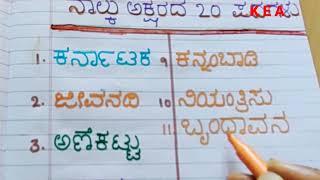 ನಾಲ್ಕು ಅಕ್ಷರದ 20 ಪದಗಳು
KEA
1. ಕರ್ನಾಟಕ
9 ಕನ್ನಂಬಾಡಿ
2. ಜೀವನದಿ
10 ನಿಯಂತ್ರಿಸು
3. ಅಣೆಕಟ್ಟು
11 ಬೃಂದಾವನ